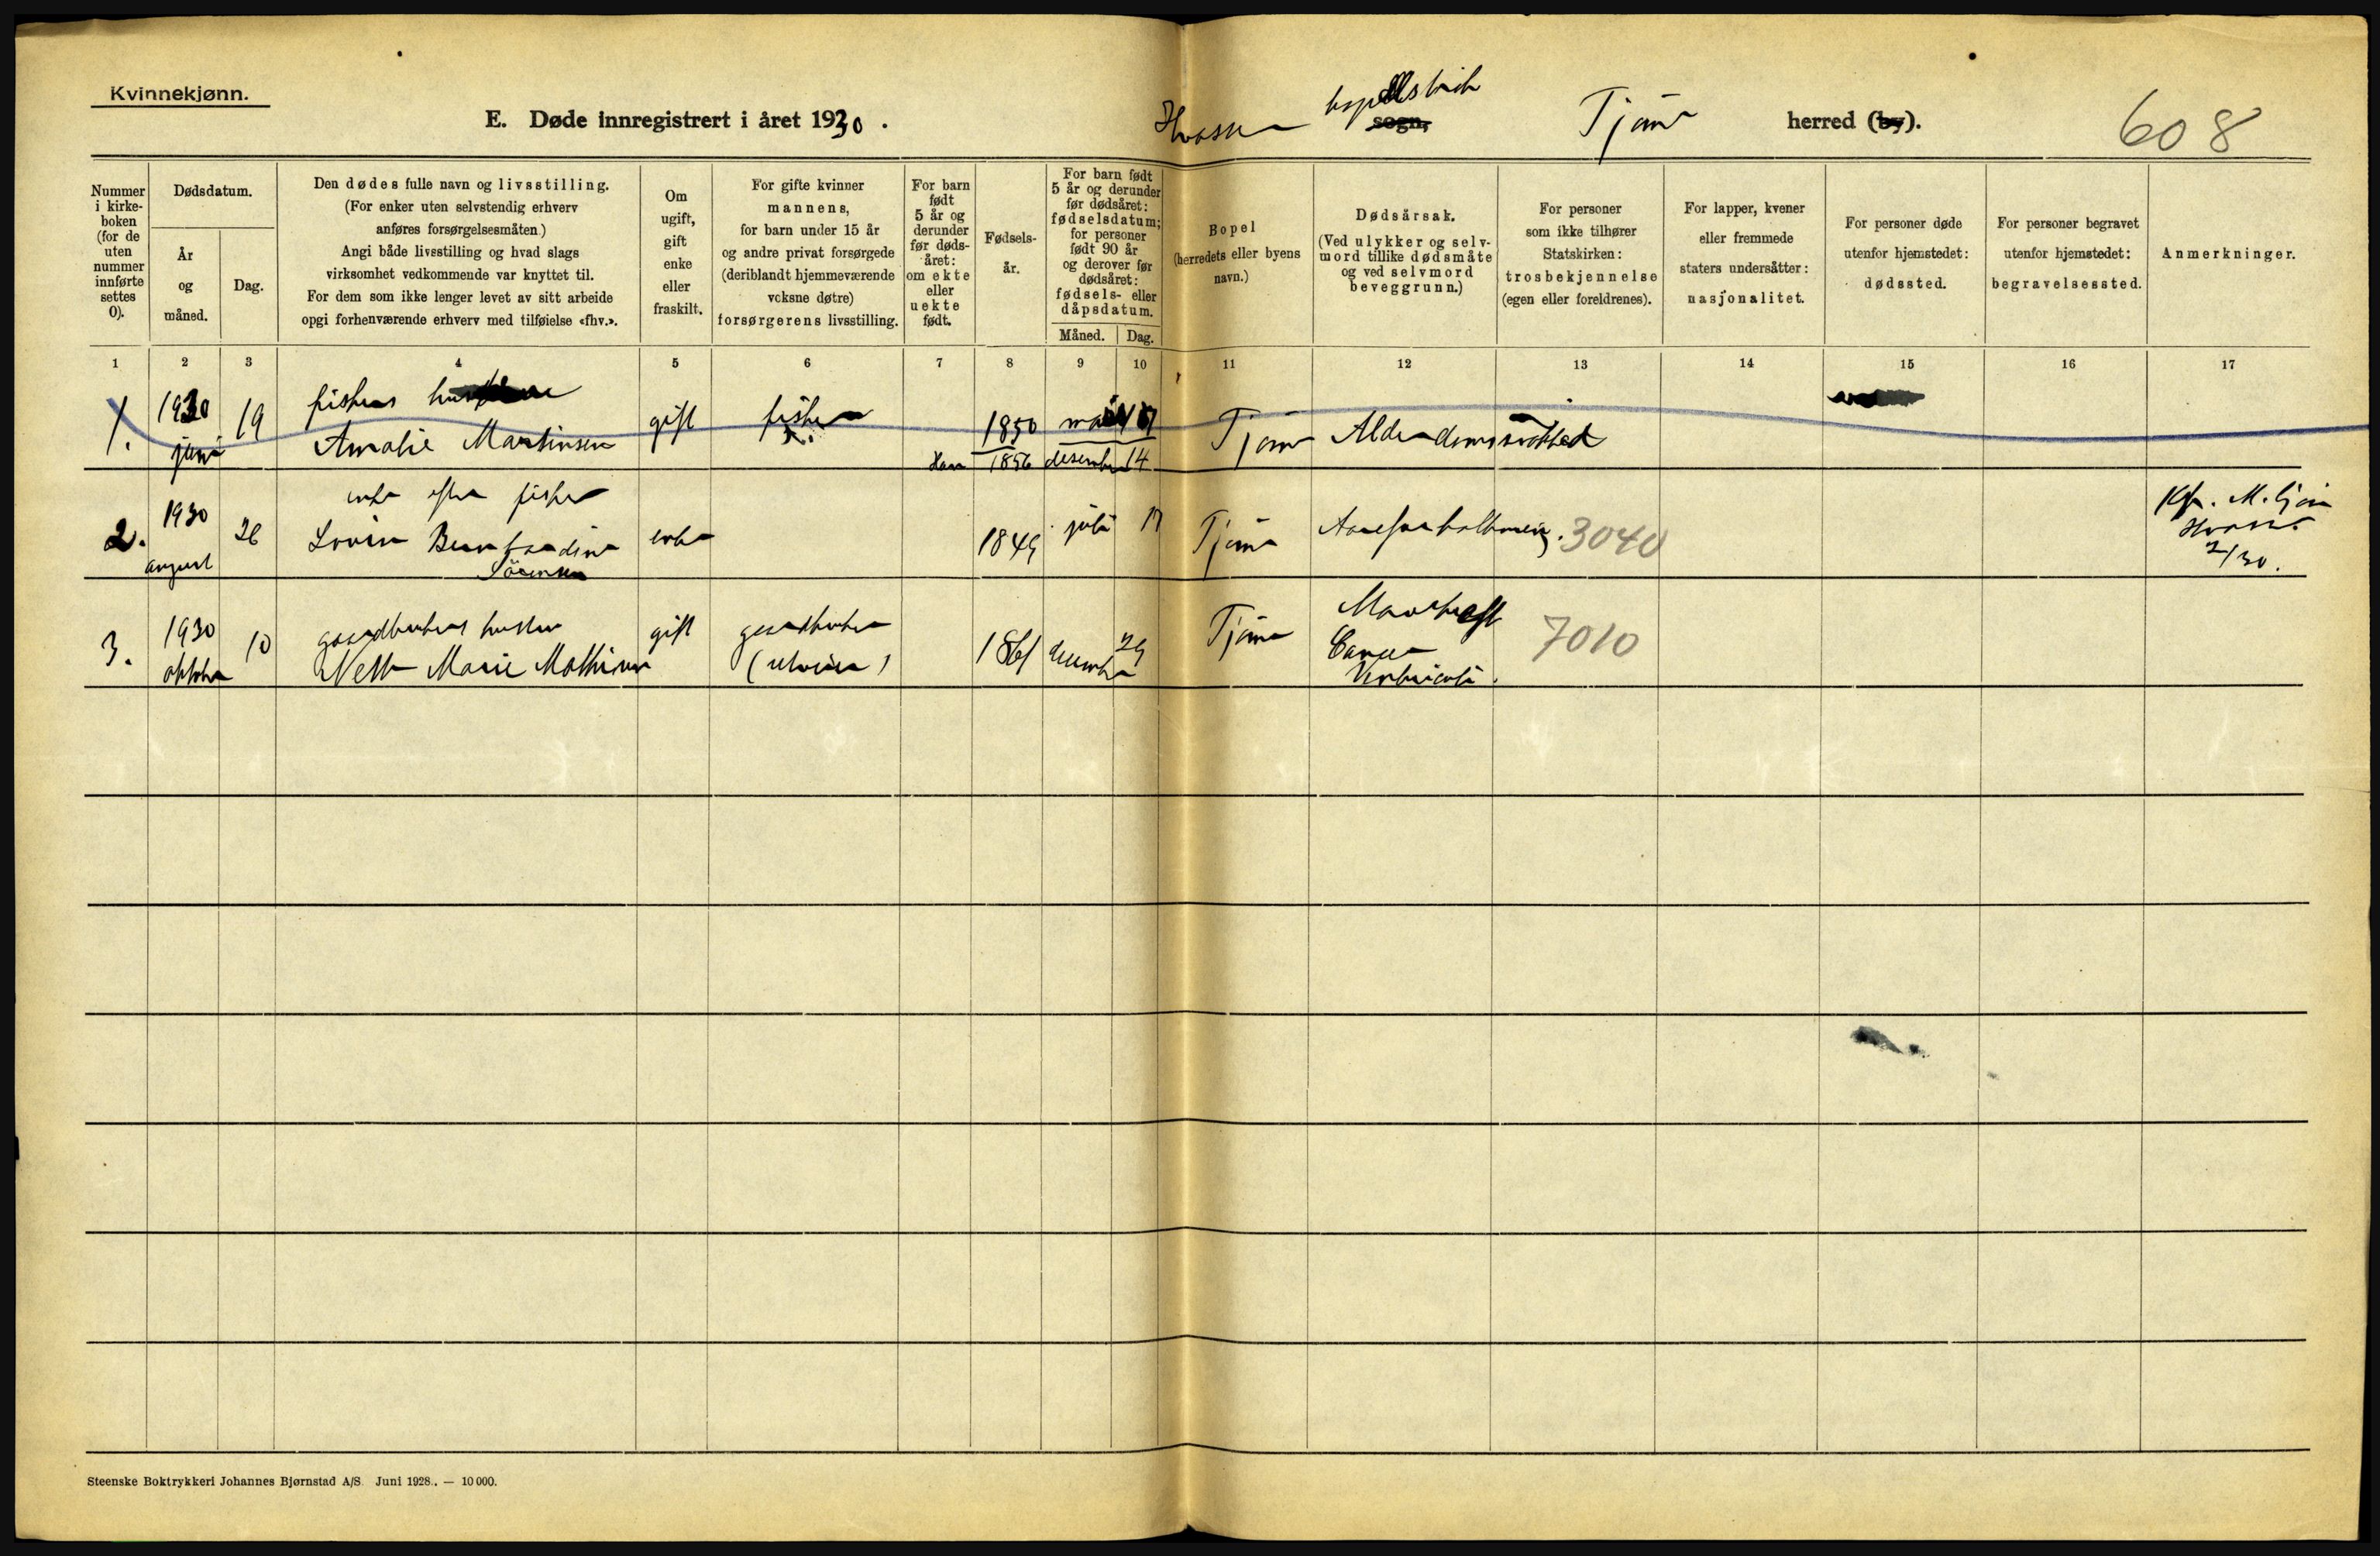 Kvinnekjønn.
E. Døde innregistrert i året 1930.
kapelldistrikt
sogn, Tjøme herred (by).
608
Nummer i kirke-boken (for de uten nummer innførte settes 0).
Dødsdatum.
År og måned.
Dag.
Den dødes fulle navn og livsstilling.
(For enker uten selvstendig erhverv
anføres forsørgelsesmåten)
Angi både livsstilling og hvad slags
virksomhet vedkommende var knyttet til.
For dem som ikke lenger levet av sitt arbeide
opgi forhenværende erhverv med tilføielse «fhv.».
Om
ugift,
gift
enke
eller
fraskilt.
For gifte kvinner
mannens,
for barn under 15 år
og andre privat forsørgede
(deriblandt hjemmeværende
voksne døtre)
forsørgerens livsstilling.
For barn
født
5 år og
derunder
før døds-
året:
om ekte
eller
uekte
født.
Fødsels-
år.
For barn født
5 år og derunder
før dødsåret:
fødselsdatum;
for personer
født 90 år
og derover før
dødsåret:
fødsels- eller
dåpsdatum.
Måned. Dag.
Bopel
(herredets eller byens
navn.)
Dødsårsak.
(Ved ulykker og selv-
mord tillike dødsmåte
og ved selvmord
beveggrunn.)
For personer
som ikke tilhører
Statskirken:
trosbekjennelse
(egen eller foreldrenes).
For lapper, kvener
eller fremmede
staters undersåtter:
nasjonalitet.
For personer døde
utenfor hjemstedet:
dødssted.
For personer begravet
utenfor hjemstedet:
begravelsessted.
Anmerkninger.
1 2 3 4 5 6 7 8 9 10 11 12 13 14 15 16 17
1. 1930 juni 19
fiskers
Amalie Martinsen
gift fisker 1850 Tjøme Alderdomssvakhet
Han 1856 desember 14
2. 1930 august 26
enke efter fisker
Lovise Bernhardine
Sörensen
enke 1849 juli 17 Tjöme 3040
3. 1930 oktober 10
gaardbrukers hustru
Nella Marie Mathisen
gift gaardbruker
1861 december 29 Tjöme
Cancer
Ventriculi.
7010
Steenske Boktrykkeri Johannes Bjørnstad A/S. Juni 1928. — 10 000.